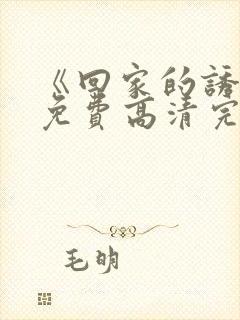 《回家的誘
免費高清完
毛明